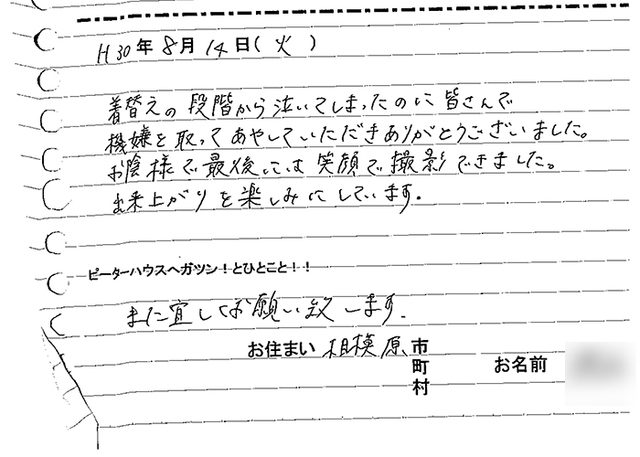 H30年8月14日(火)
着替えの段階から泣いてしまったのに皆さんで
機嫌を取ってあやしていただきありがとうございました。
お陰様で最後には笑顔で撮影できました。
出来上がりを楽しみにしています。
ピーターハウスへガツン!とひとこと!!
また宜しくお願い致します.
お住まい 相模原 市
町
村
お名前